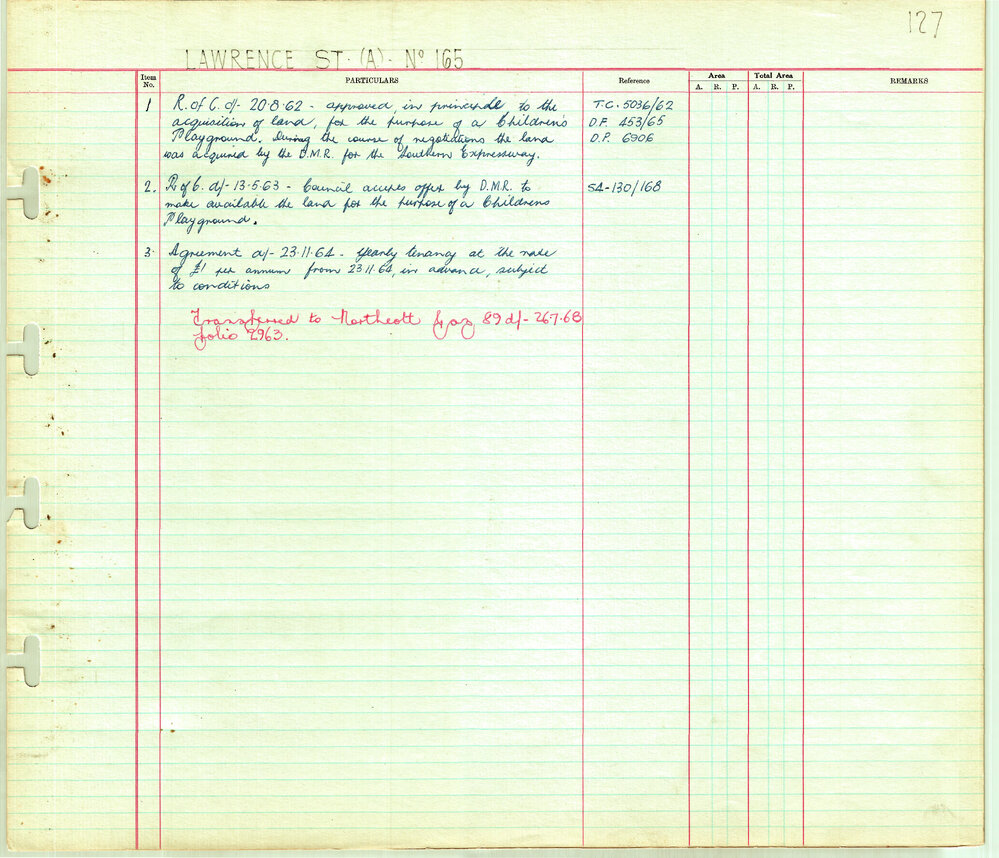 127
LAWRENCE ST. (A) - Nº 165
Item No. PARTICULARS Reference Area Total Area REMARKS
A. R. P. A. R. P.
1 R. of C. d/- 20.8.62 - approved, in principle to the T.C. 5036/62
acquisition of land, for the purpose of a Children's D.F. 453/65
Playground. During the course of negotiations the land D.P. 6906
was acquired by the D.M.R. for the Southern Expressway.
2. R of C. d/- 13.5.63 - Council accepts offer by D.M.R. to SA-130/168
make available the land for the purpose of a Childrens
Playground.
3. Agreement d/- 23.11.64 - Yearly tenancy at the rate
of £1 per annum from 23.11.64, in advance, subject
to conditions
Transferred to Northcott Gaz 89 d/- 26.7.68
folio 2963.